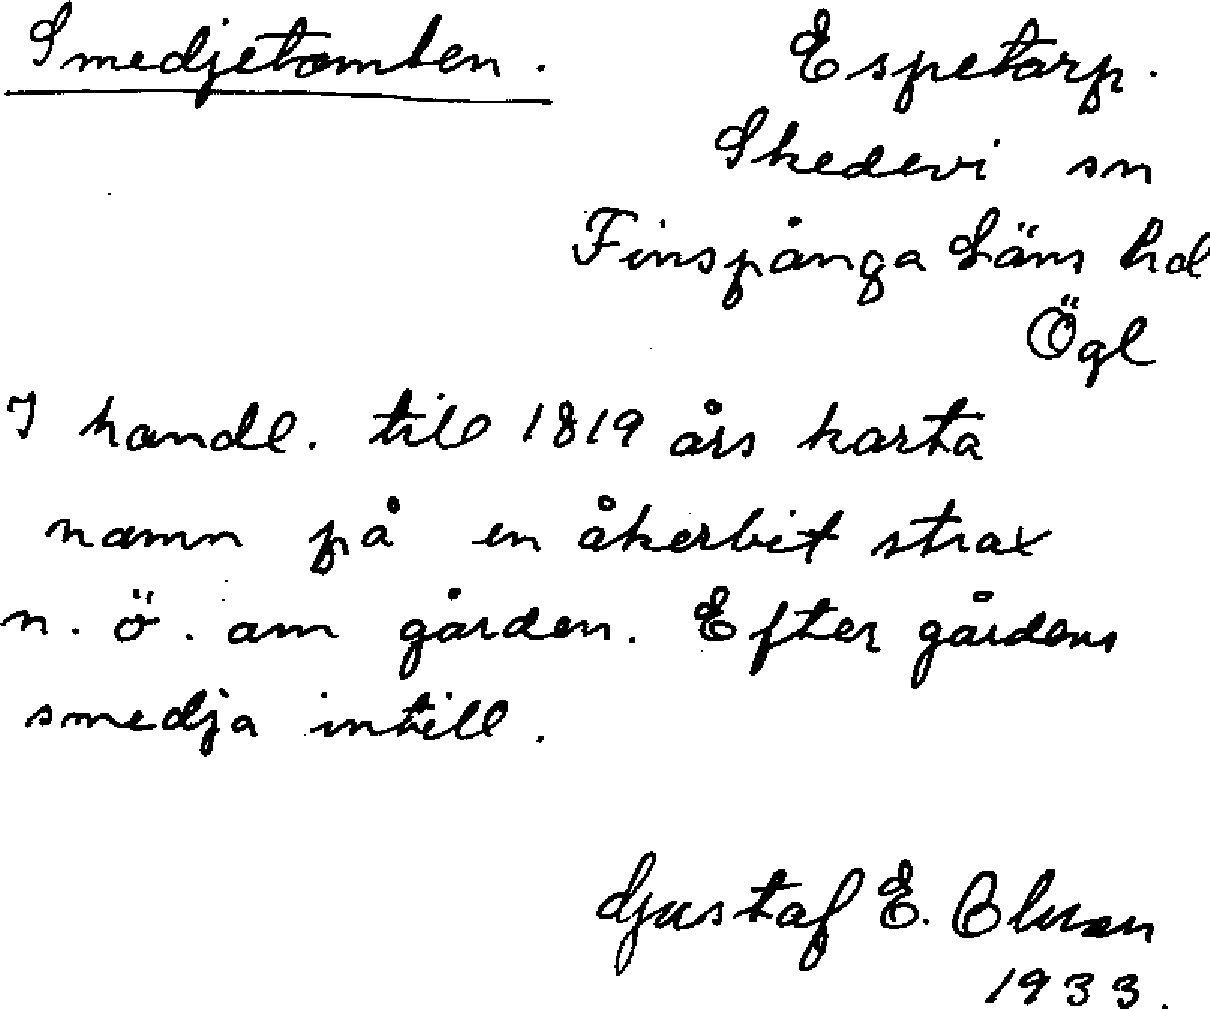 Smedjetomten.
Espetorp.
Skedevi sn
Finspånga Läns hd
Ögl
I handl. till 1819 års karta
namn på en åkerbit strax
n.ö. om gården. Efter gårdens
smedja intill.
Gustaf E.
1933.